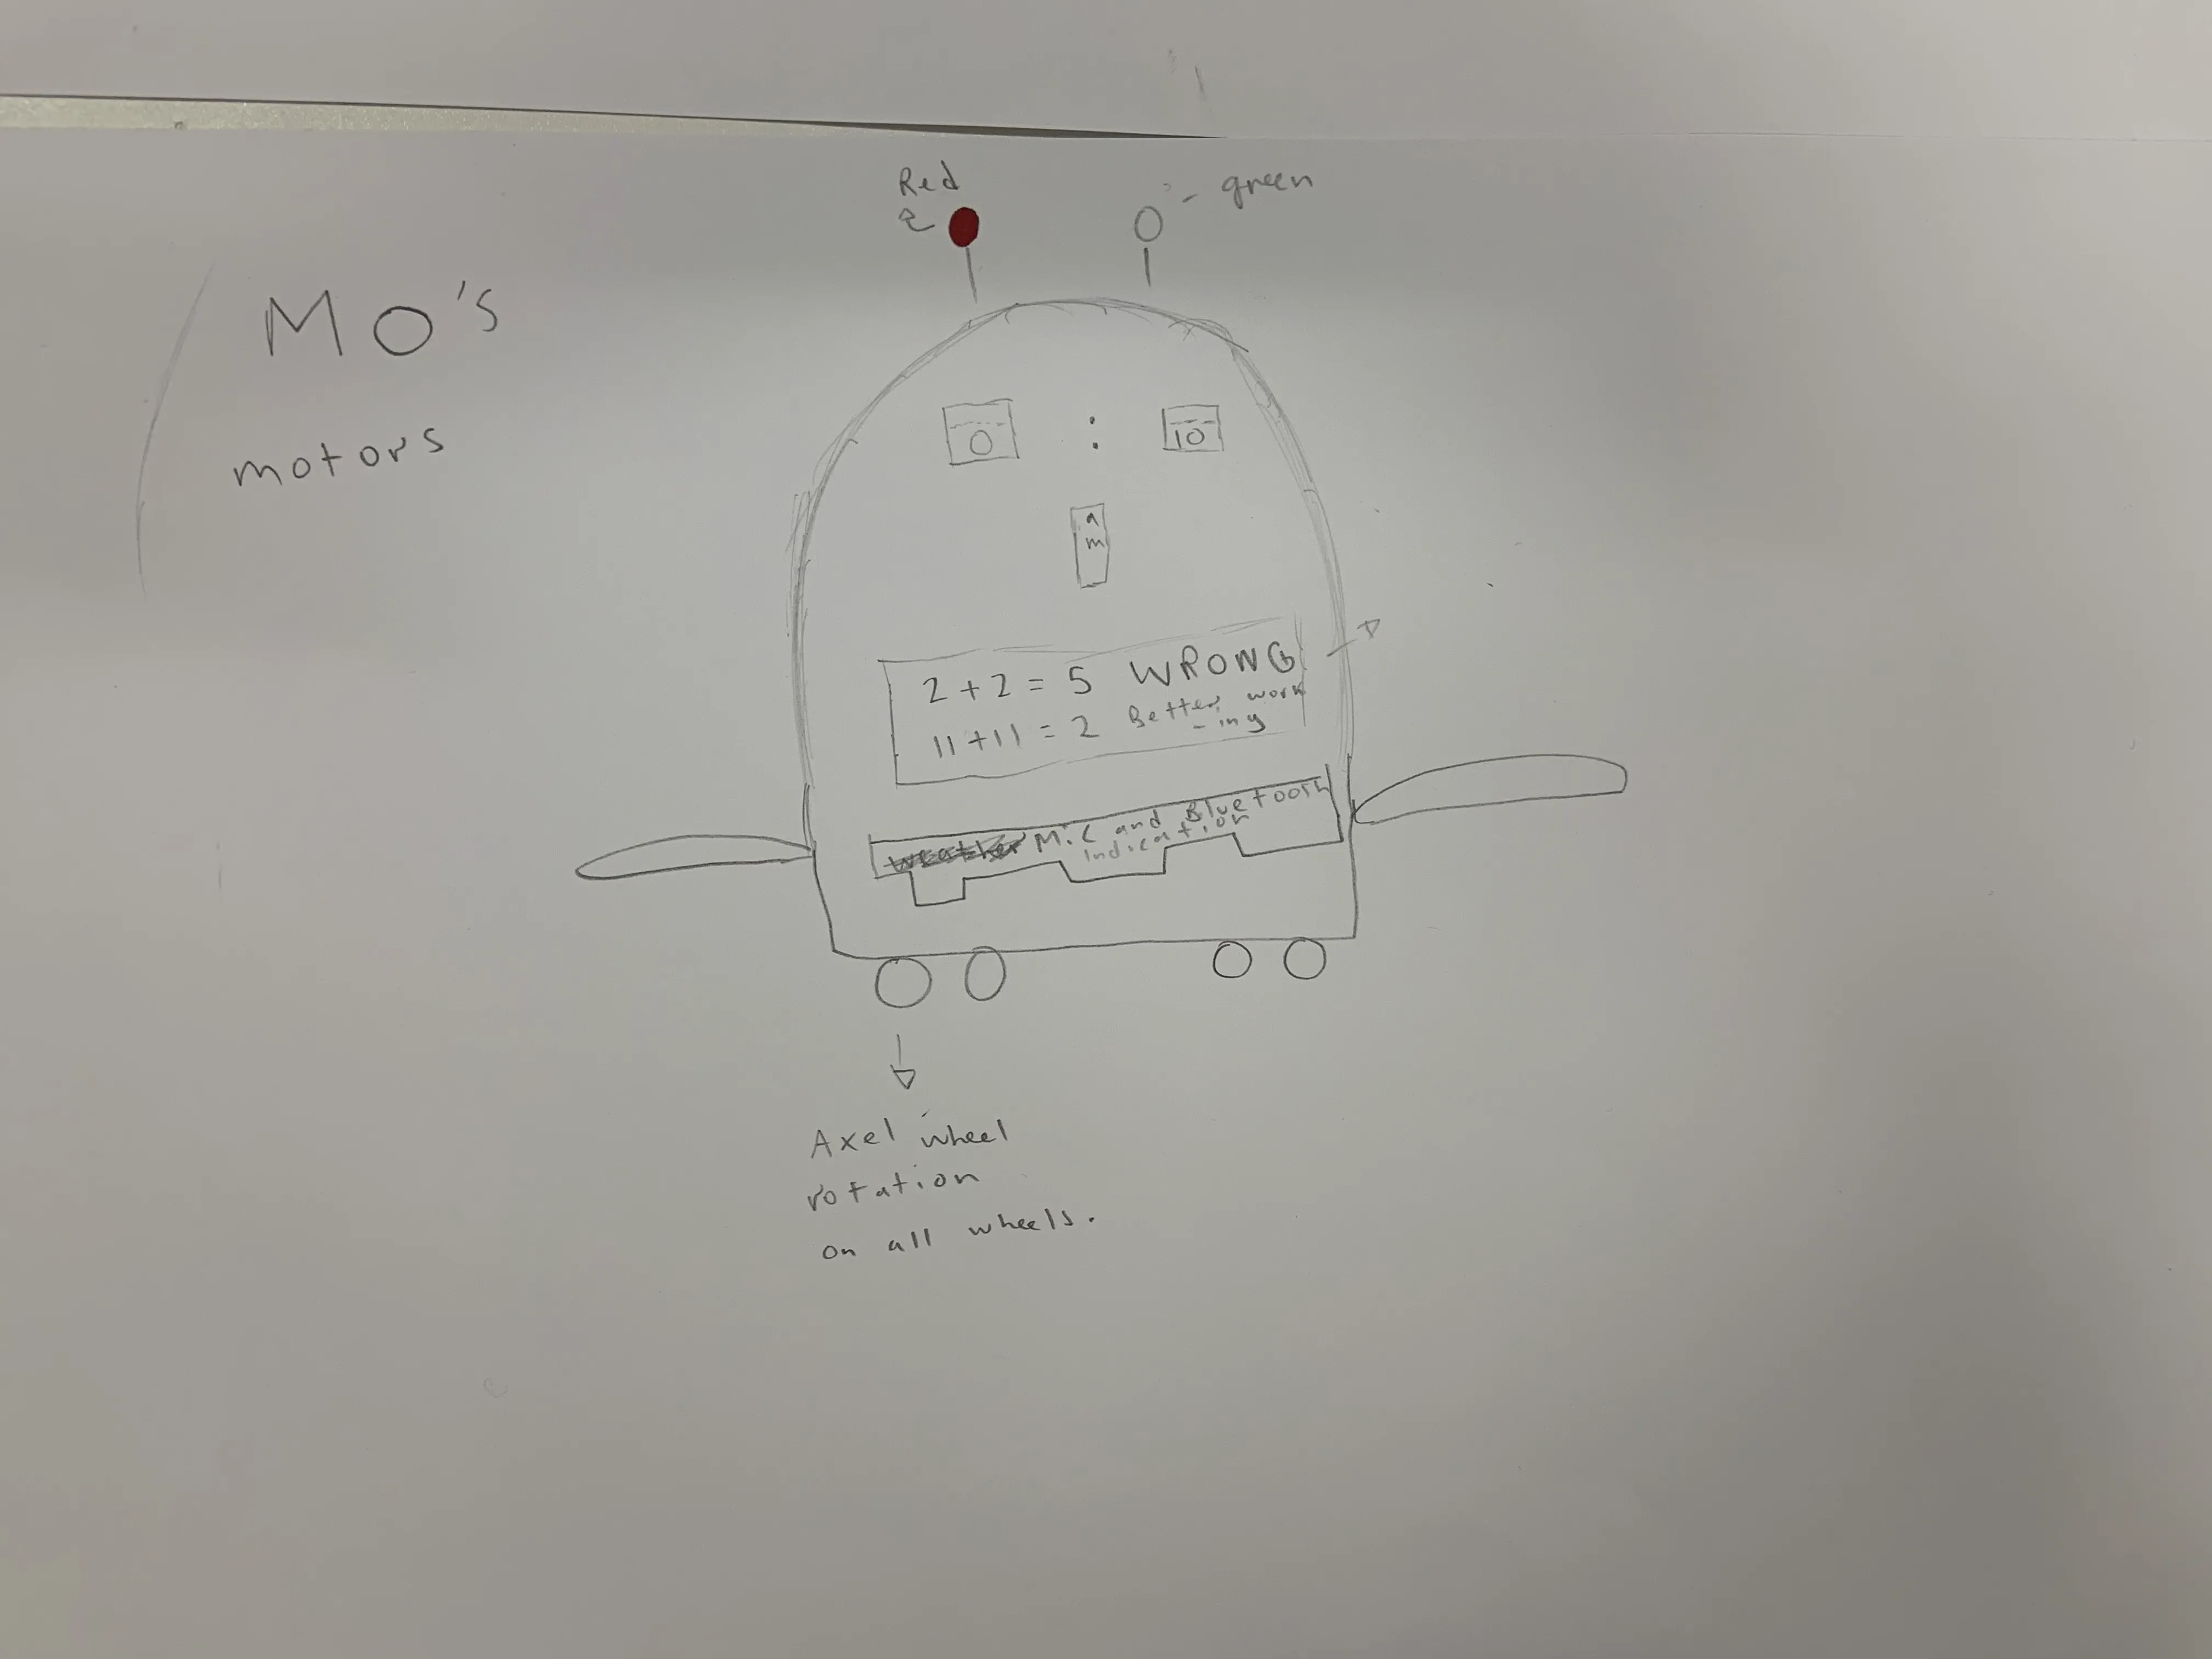 Red
green
Mo's
motors
0 : 10
am
2+2 = 5 WRONG
11+11 = 2 Better work
-ing
Mic and Bluetooth
Indication
Axel wheel
rotation
on all wheels.